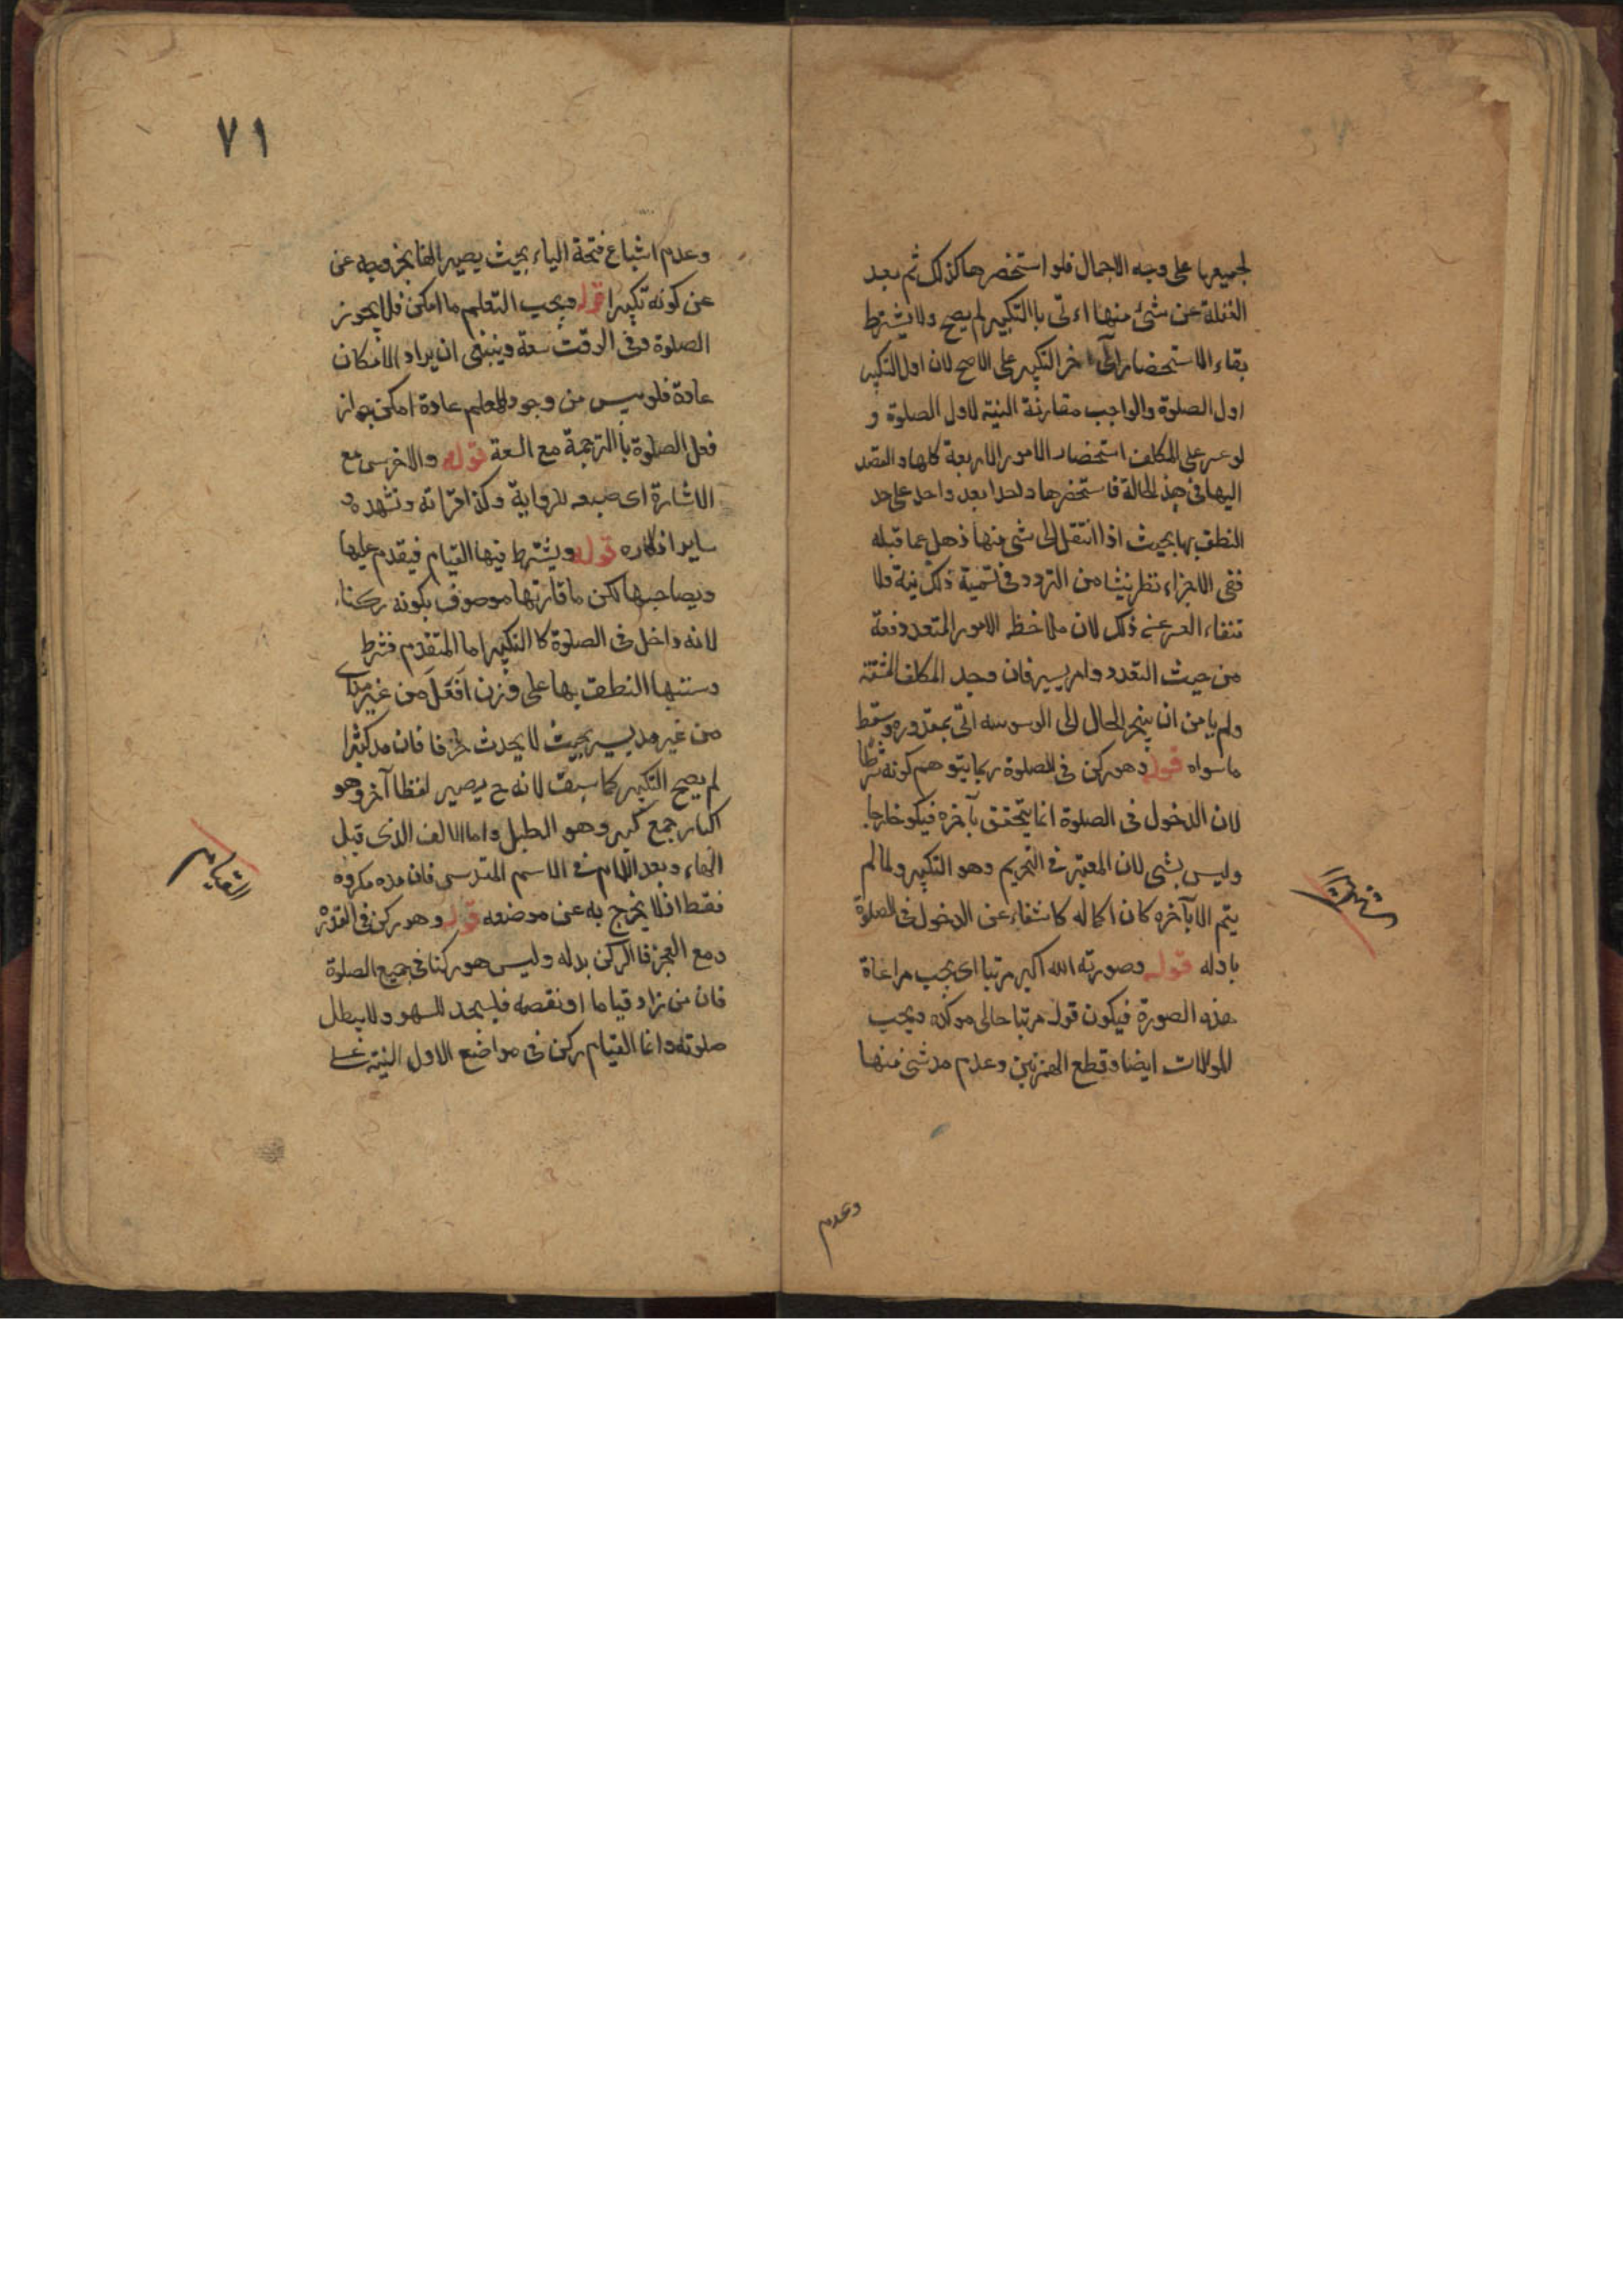 لجميعها على وجه الاجمال فلو استحضرها كذلك ثم بعد
الغفلة عن شئ منها اتى باالتكبير لم يصح ولا يشترط
بقاء الاستحضار الى آخر التكبير على الاصح لان اول التكبير
اول الصلوة والواجب مقارنة النية لاول الصلوة و
لو عسر على المكلف استحضار الامور الاربعة كلها والقصد
اليها فى هذه الحالة فاستحضرها واحدا بعد واحد على حد
النطق بها بحيث اذا انتقل الى شئ منها ذهل عما قبله
ففى الاجزاء نظر ينشا من التردد فى تسمية ذلك نية ولا
نتفاء العسر عن ذلك لان ملاخظه الامور المتعدد دفعة
من حيث التعدد وامر يسير فان وجد المكلف المشقة
ولم يامن ان ينجر الحال الى الوسوسه اتى بمقدوره وسقط
ما سواه قوله وهو ركن فى الصلوة ربما يتوهم كونه شرطا
لان الدخول فى الصلوة انما يتحقق بآخره فيكو خارجا
وليس بشئ لان المعتبر فى التحريم وهو التكبير ولما لم
يتم الا بآخره كان اكماله كاشفاء عن الدخول فى الصلوة
باوله قوله وصورته الله اكبر مرتبا اى يجب مراعاة
هذه الصورة فيكون قوله مرتبا حالى موكده ويجب
الموالات ايضا وقطع الهمزتين وعدم مد شئ منها
وعدم
٧١
وعدم اشباع فتحة الباء بحيث يصير الفا بخروجه عن
عن كونه تكبيرا قوله ويجب التعلم ما امكن فلا يجوز
الصلوة وفى الوقت سعة وينبغى ان يراد الامكان
عادة فلو يس من وجود المعلم عادة امكن جواز
فعل الصلوة باالترجمة مع السعة قوله والاخرس مع
الاشارة اى صبعه للرواية وكذا قراته وتشهده و
ساير اذكاره قوله ويشترط فيها القيام فيقدم عليها
ويصاحبها لكن ما قارنها موصوف بكونه ركنا
لانه داخل فى الصلوة كا التكبير اما المتقدم فشرط
النطق بها على وزن افعل من غير
من غير مد يسير بحيث لا يحدث حرفا فان مد كثيرا
لم يصح التكبير كما سبق لانه ح يصير لفظا آخر وهو
اكبار جمع كبر وهو الطبل واما الالف الذى قبل
الهاء وبعد اللام فى الاسم المقدس فان مده مكروه
فقط اذ لا يخرج به عن موضعه قوله وهو ركن فى القدرة
ومع العجز فا الركن بدله وليس هو ركنا فى جميع الصلوة
فان من زاد قياما او نقصه فليسجد للسهو ولا يبطل
صلوته وانما القيام ركن فى مواضع الاول النية
القيام